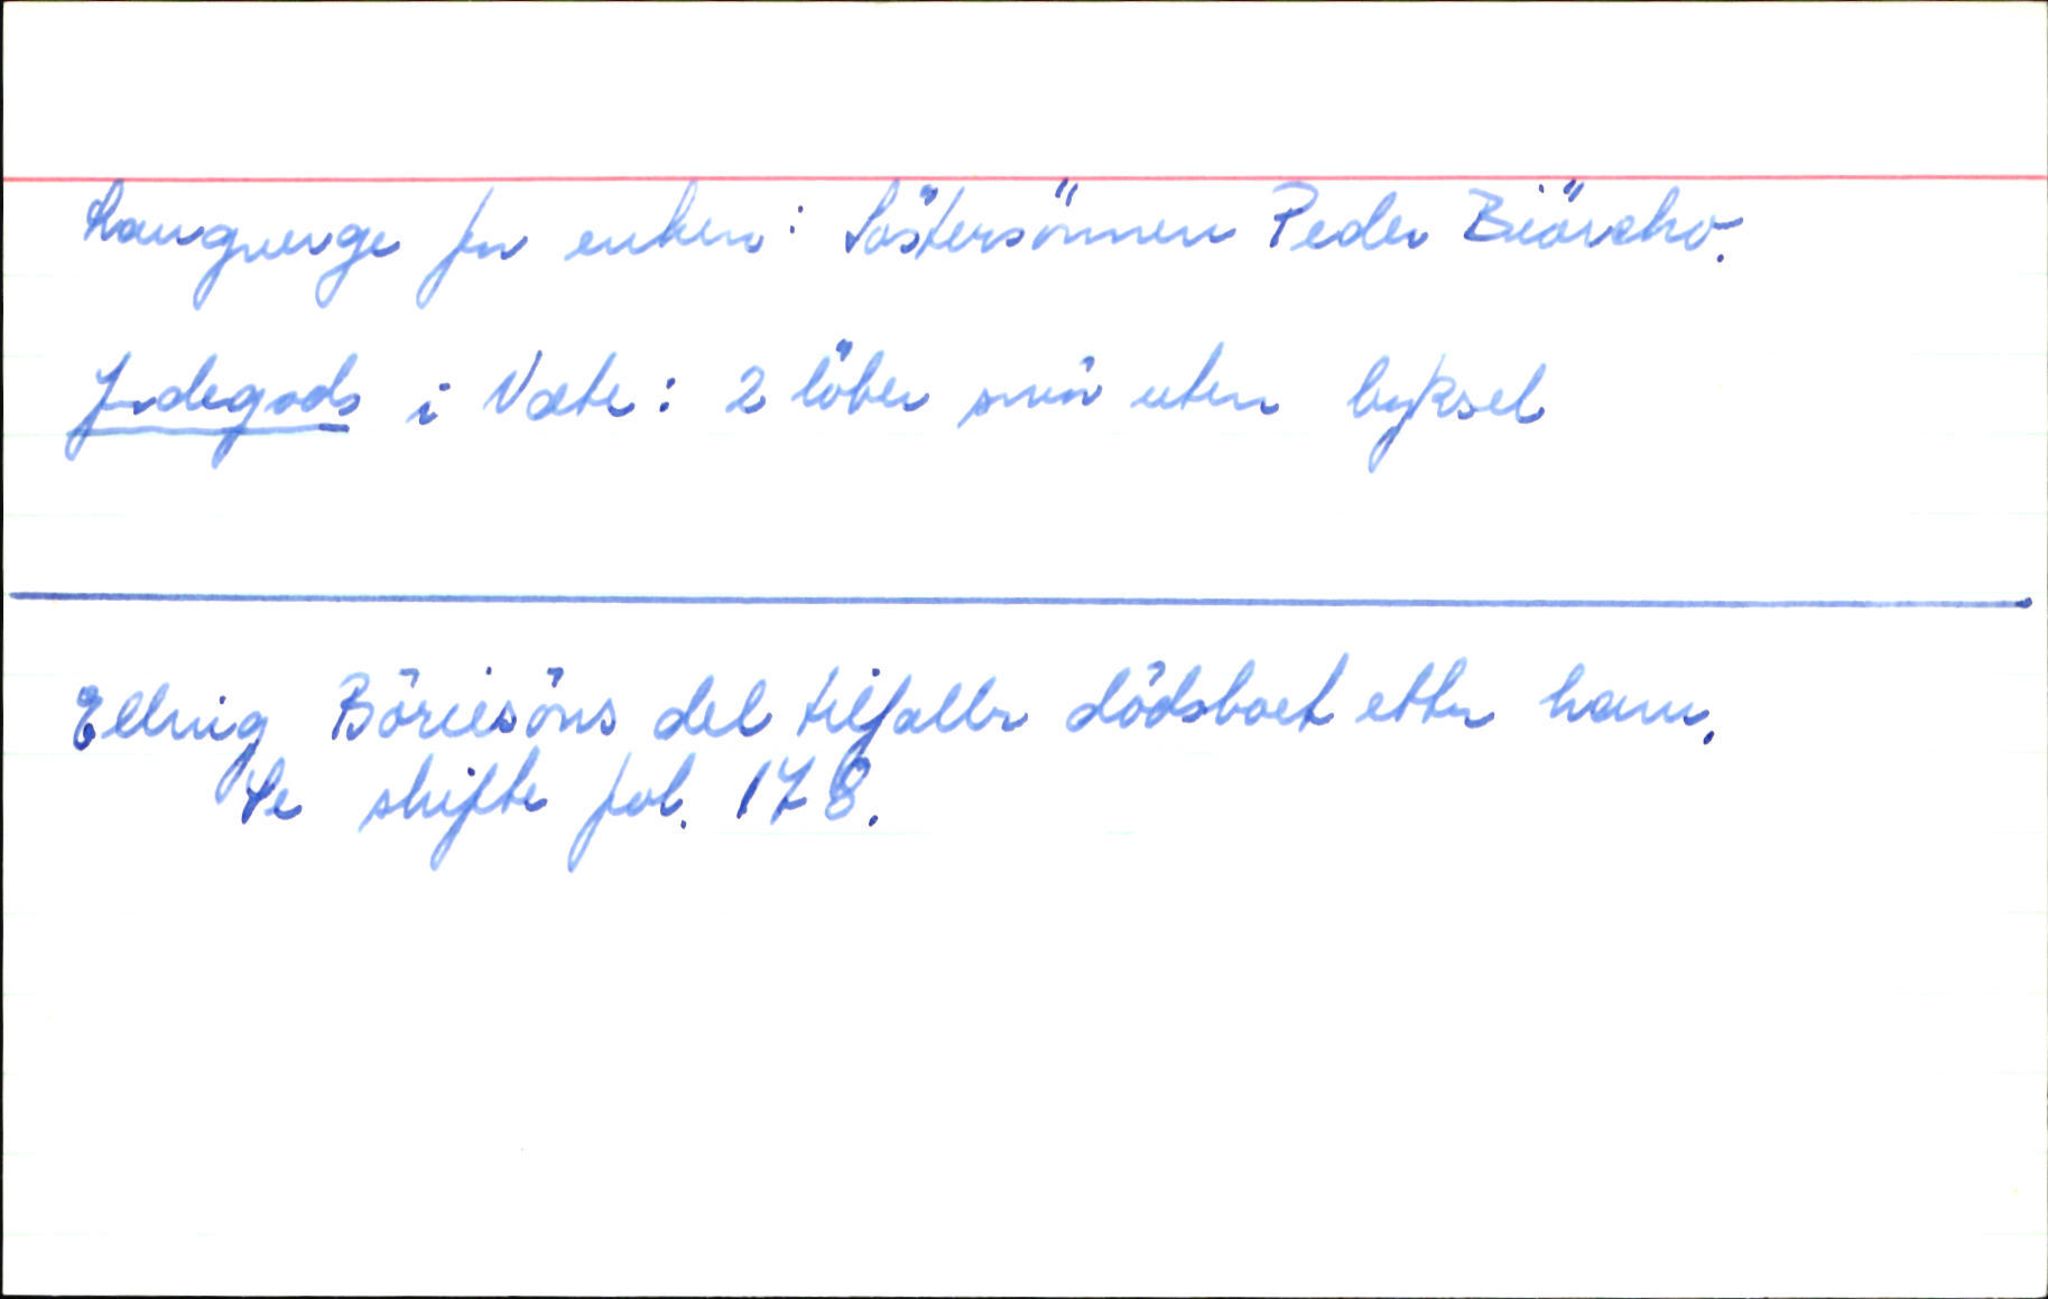 Laugverge for enken: Söstersönnen Peder Biörcho.
Jordegods i Næte: 2 löber smör uten byksel
Elling Böriesöns del tilfaller dödsboet etter ham.
Se skifte fol. 178.